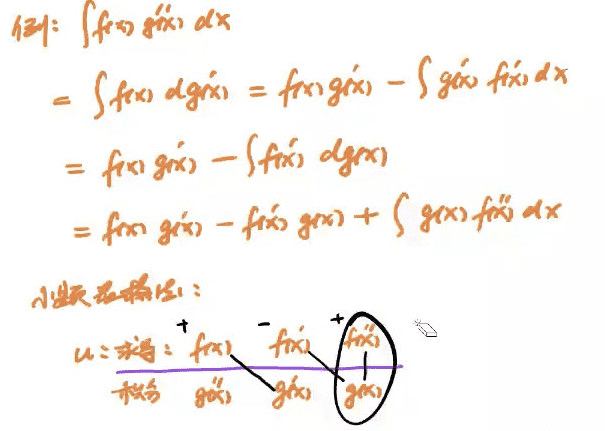 例: ∫f(x) g''(x) dx
= ∫f(x) dg'(x) = f(x) g'(x) - ∫g'(x) f'(x) dx
= f(x) g'(x) - ∫f'(x) dg(x)
= f(x) g'(x) - f'(x) g(x) + ∫ g(x) f''(x) dx
小题表格法:
+ - +
u: 求导: f(x) f'(x) f''(x)
积分 g''(x) g'(x) g(x)